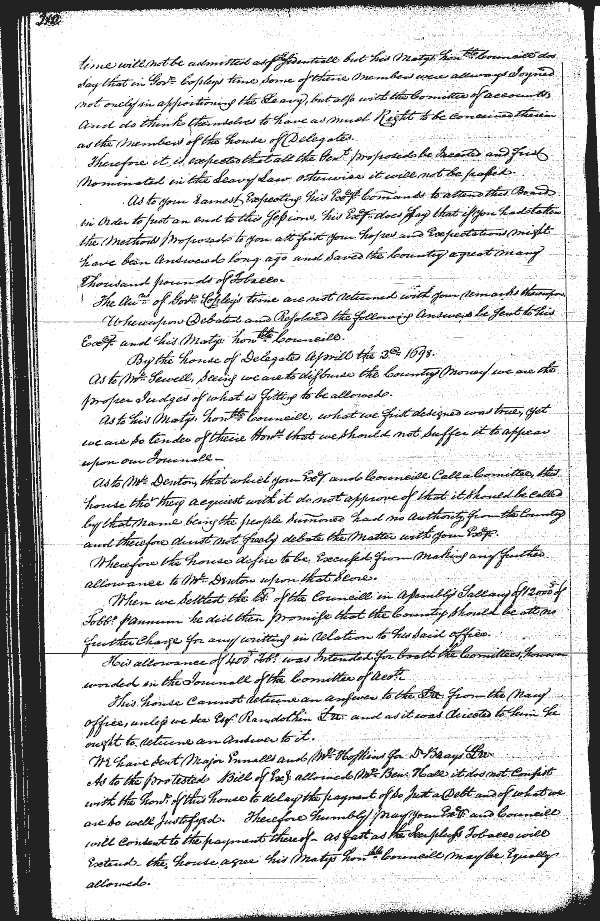 time will not be admitted as Presidentiall but his Matys honble Councill dos
Say that in Govr. Copleys time some of theire members were allways Joyned
not onely in apportioning the Leavy, but also with the Comittee of accounts
And do think themselves to have as much Right to be concerned therein
as the members of the house of Delegates.
Therefore it is expected that all the proposed be Incerted and first
Nominated in the Leavy Law otherwise it will not be passed.
As to your Earnest Expecting his Exys Comands to attend this Board
in Order to put an end to this Sessions, his Exy. does say that if you had taken
the Methods proposed to you att first your hopes and Expectations might
have been answered long ago and saved the Country a great many
Thousand pounds of Tobacco.
The of Govr. Copley's time are not returned with your remarks thereupon
Whereupon Debated and Resolved the following Answer be sent to his
Exy. and his Matys honble Councill.
By the house of Delegates Aprill the 2d. 1698.
As to Mr. Sewell, Seeing we are to disburse the Country Money we are the
proper Judges of what is fitting to be allowed.
As to his Matys. honble Councill, what we first designed was true, yet
we are so tender of theire Honrs that we should not suffer it to appear
upon our Journall—
As to Mr. Denton, that which your Exy and Councill Call a Comittee, this
house tho' they acquest with it do not approve of that it should be called
by that Name being the people Sumoned had no Authority from the Country
and therefore durst not freely debate the Matter with your Exy.
Wherefore the house desire to be Excused from making any further
allowance to Mr. Denton upon that Score.
When we Settled the Cl: of the Councill in Assembly Sallary of 12000 of
Tobbo. p annum he did then promise that the Country should be att no
further Charge for any writing in relation to his said office.
His allowance of 400 Tob. was Intended for both the Comittees, however
worded in the Journall of the Comittee of Accots.
This house Cannot returne an answer to the Lre from the Navy
office, unless we see Esq Randolphs Lre and as it was directed to him he
ought to returne an Answer to it.
We have sent Major Ennalls and Mr. Hopkins for Dr Brays Lre
As to the Protested Bill of Exa allowed Mr. Benj. Hall it does not Consist
with the Honr. of this house to delay the payment of so Just a Debt and of what we
are so well Justifyed. Therefore humbly pray your Exy and Councill
will Consent to the payment thereof – as fast as the Surpluss Tobacco will
Extend the house agree his Matys honble Councill may be Equally
allowed.